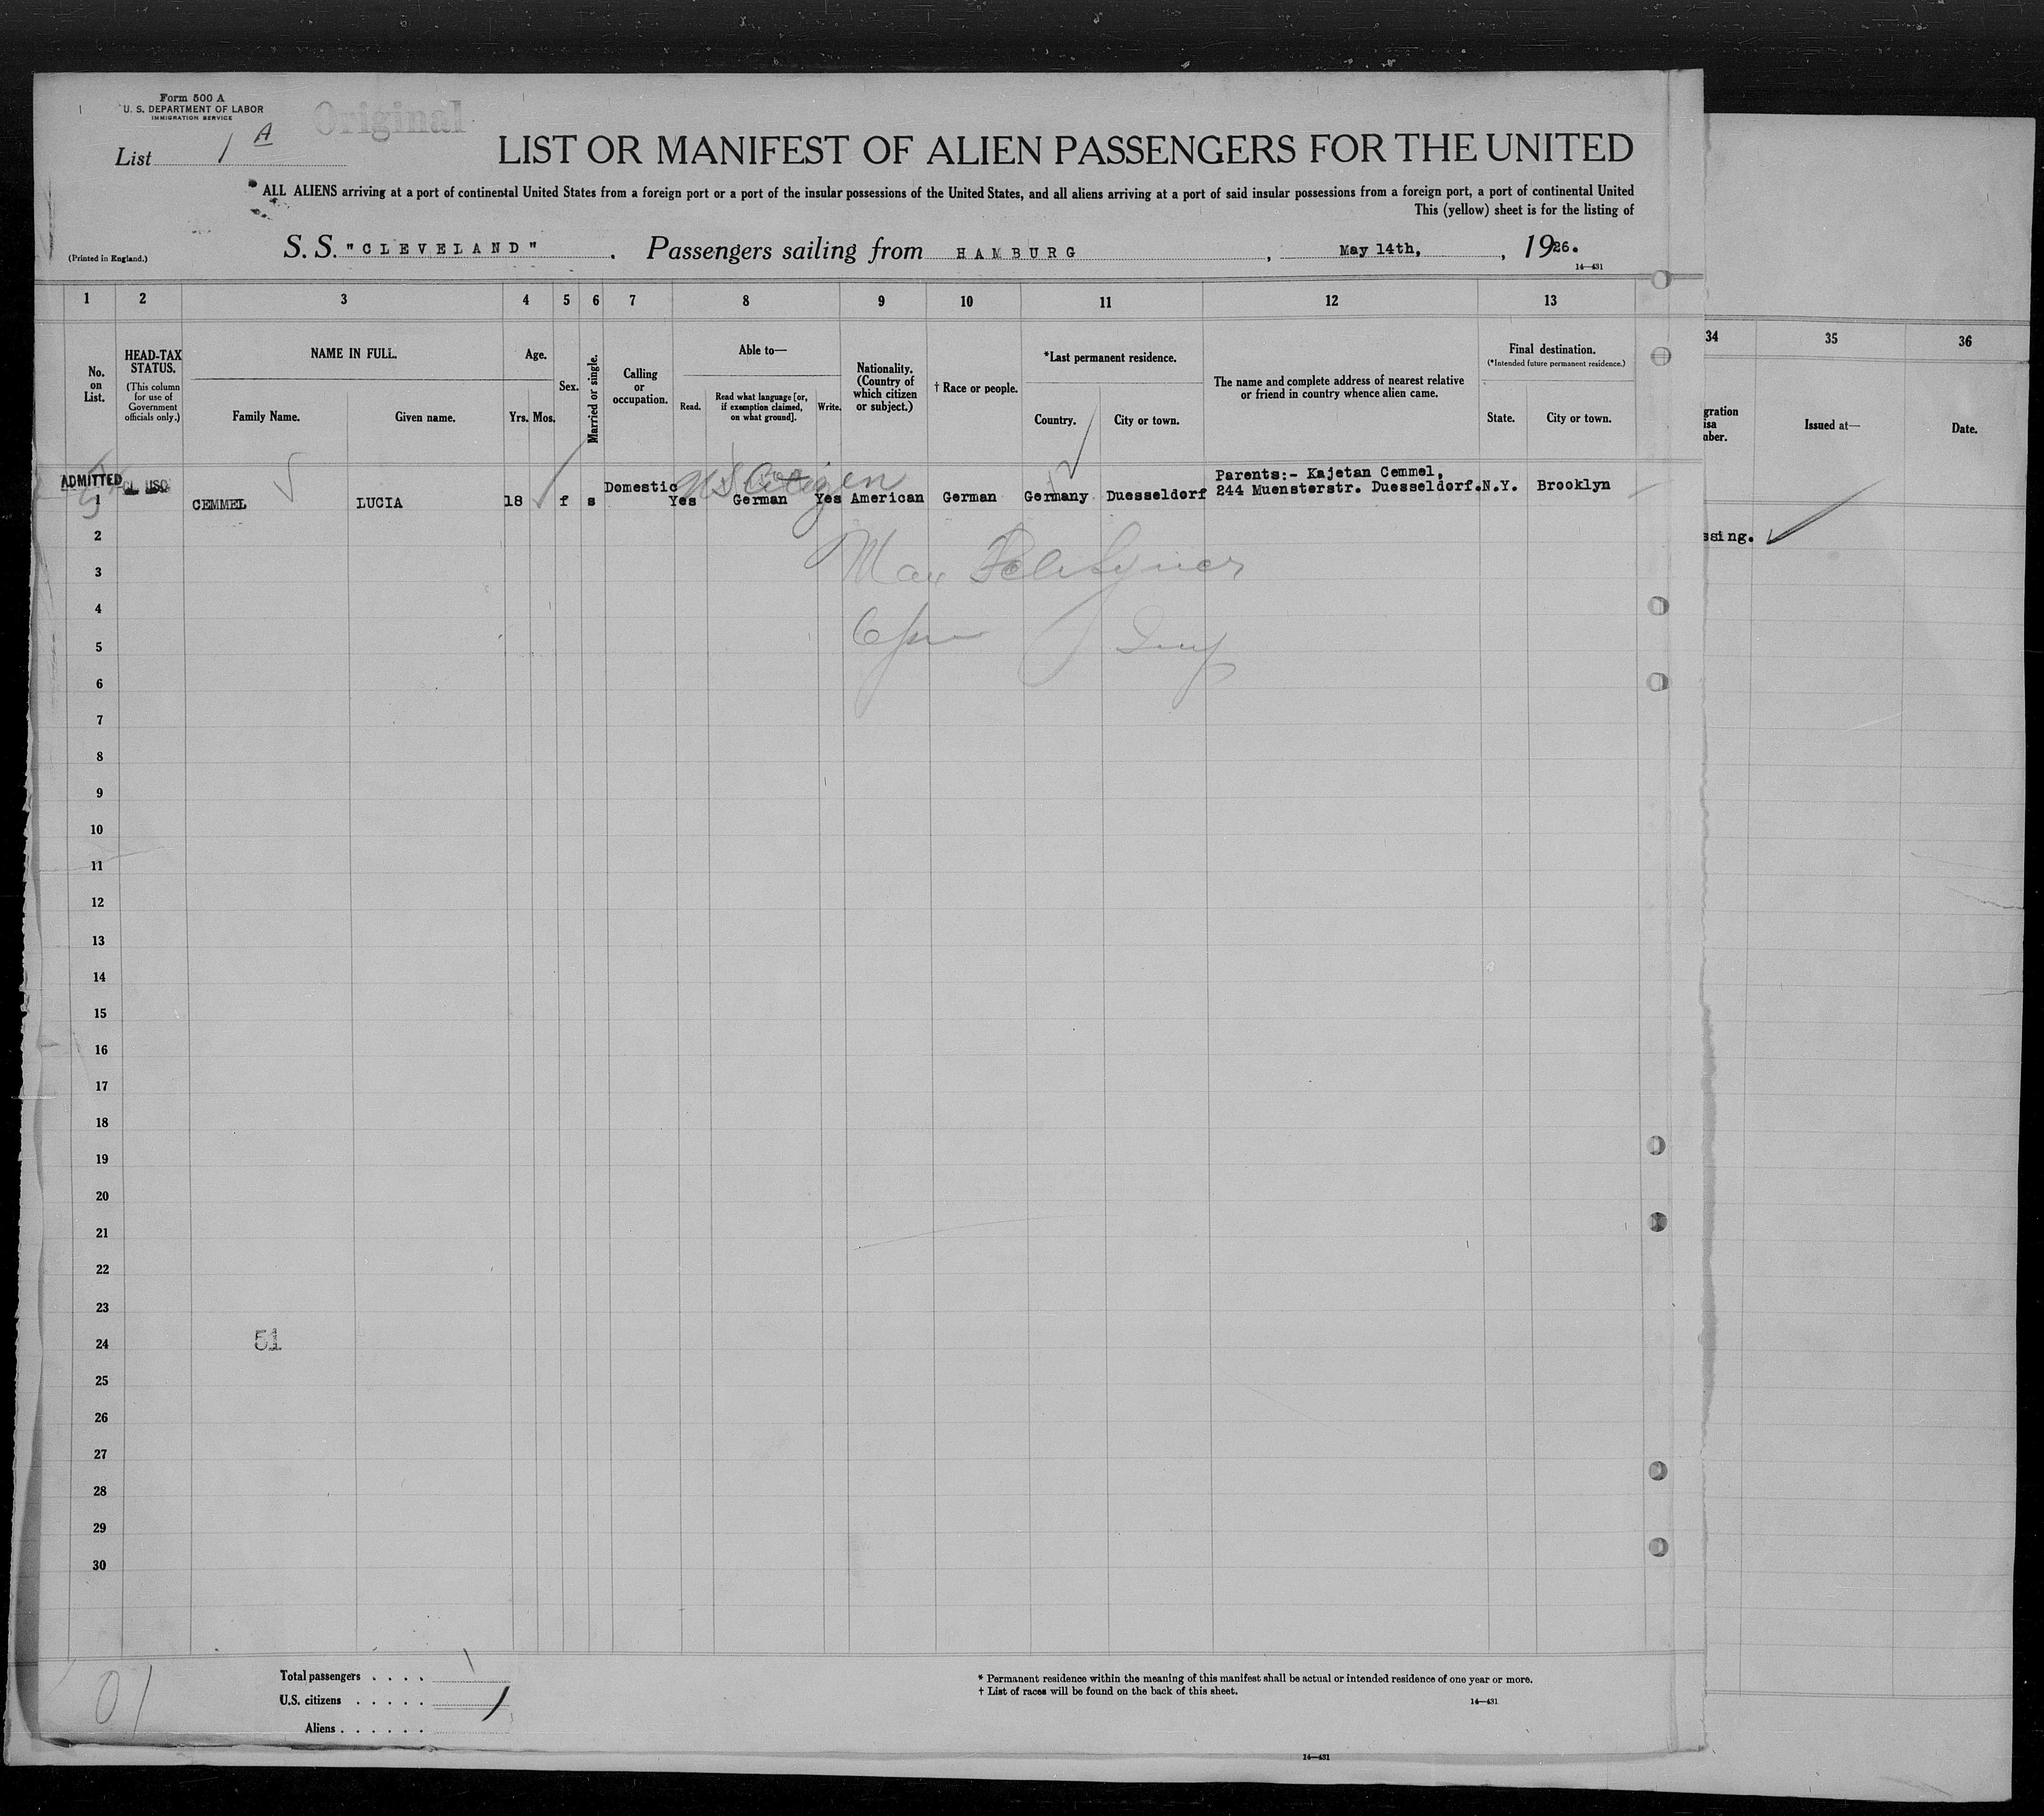 Form 500 A
U. S. DEPARTMENT OF LABOR
IMMIGRATION SERVICE
Original
List 1 A
LIST OR MANIFEST OF ALIEN PASSENGERS FOR THE UNITED
ALL ALIENS arriving at a port of continental United States from a foreign port or a port of the insular possessions of the United States, and all aliens arriving at a port of said insular possessions from a foreign port, a port of continental United
This (yellow) sheet is for the listing of
(Printed in England.)
S. S. "CLEVELAND" . Passengers sailing from HAMBURG , May 14th, , 1926.
14—431
1 2 3 4 5 6 7 8 9 10 11 12 13
34 35 36
No. on List.
HEAD-TAX STATUS.
(This column for use of Government officials only.)
NAME IN FULL.
Family Name. Given name.
Age.
Yrs. Mos.
Sex.
Married or single.
Calling or occupation.
Able to—
Read. Read what language [or, if exemption claimed, on what ground]. Write.
Nationality. (Country of which citizen or subject.)
† Race or people.
*Last permanent residence.
Country. City or town.
The name and complete address of nearest relative or friend in country whence alien came.
Final destination.
(*Intended future permanent residence.)
State. City or town.
Issued at—
Date.
ADMITTED
US Citizen
1 CEMMEL LUCIA 18 f s Domestic Yes German Yes American German Germany Duesseldorf Parents:- Kajetan Cemmel,
244 Muensterstr. Duesseldorf. N.Y. Brooklyn
ssing.
2
3 Max
4
5
6
7
8
9
10
11
12
13
14
15
16
17
18
19
20
21
22
23
24 51
25
26
27
28
29
30
01
Total passengers . . . . 1
U.S. citizens . . . . . 1
Aliens . . . . . .
* Permanent residence within the meaning of this manifest shall be actual or intended residence of one year or more.
† List of races will be found on the back of this sheet.
14—431
14—431